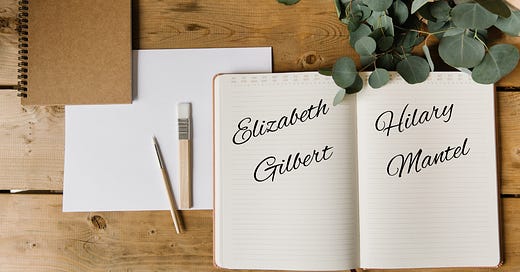 Elizabeth
Gilbert
Hilary
Mantel